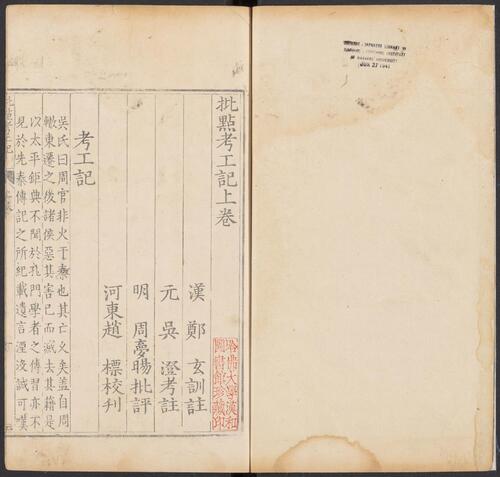 批點考工記上卷
漢 鄭 玄訓註
元 吳 澄考註
明 周夢暘批評
河東趙 標校刊
考工記
吳氏曰周官非火于秦也其亡久矣蓋自周
轍東遷之後諸侯惡其害己而滅去其籍是
以太平鉅典不聞於孔門學者之傳習亦不
見於先秦傳記之所紀載遺言湮沒誠可嘆
哈佛大學漢和圖書館珍藏印
JUN 27 1941